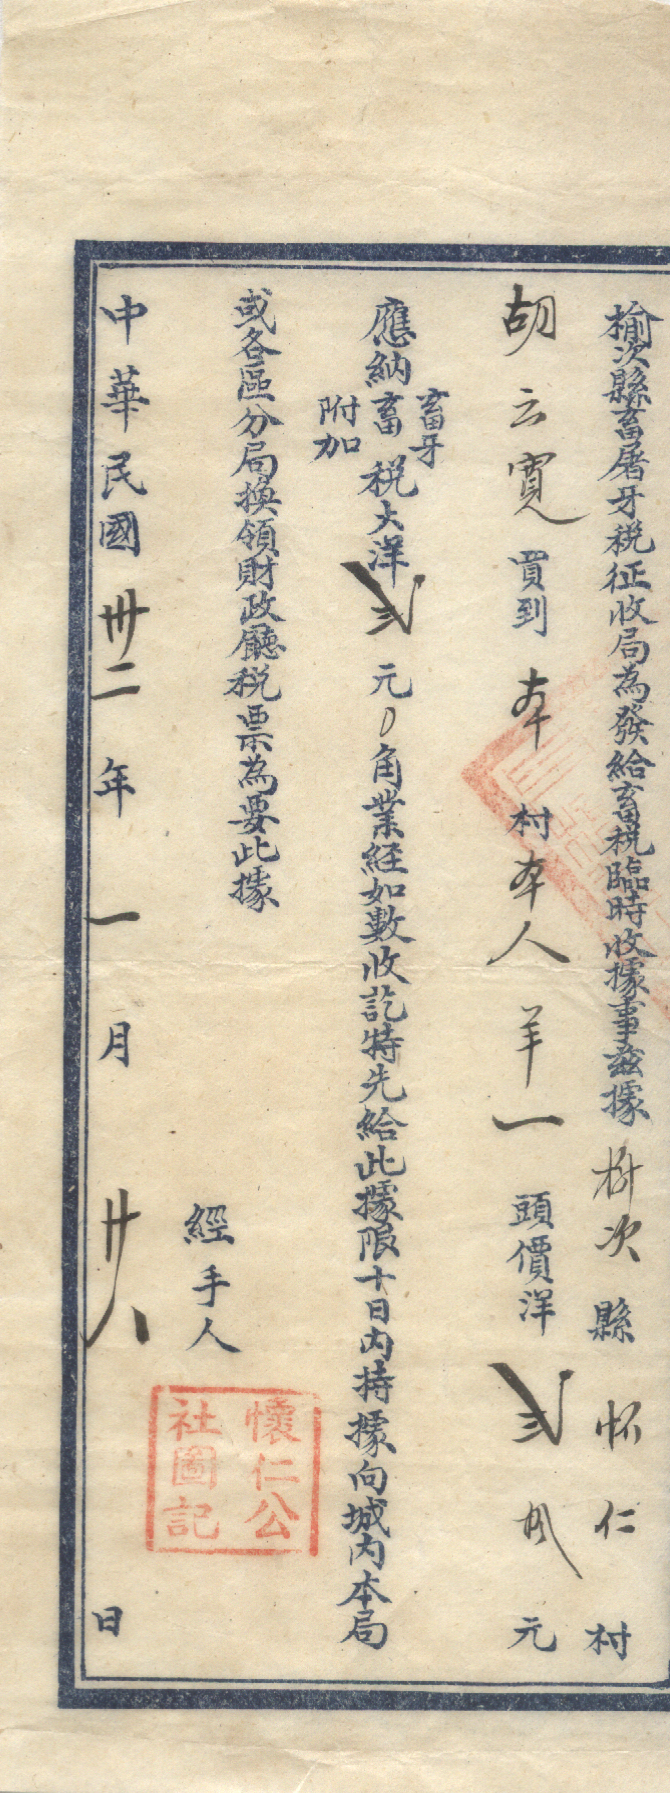 榆次縣畜屠牙稅征收局為發給畜稅臨時收據事茲據榆次縣怀仁村
胡云寬買到本村本人羊一頭價洋弍拾元
應納畜牙
畜附加
稅大洋弍元0角業経如數收訖特先給此據限十日內持據向城內本局
或各區分局換領財政廳稅票為要此據
經手人
懷仁公
社圖記
中華民國卅二年一月廿八日